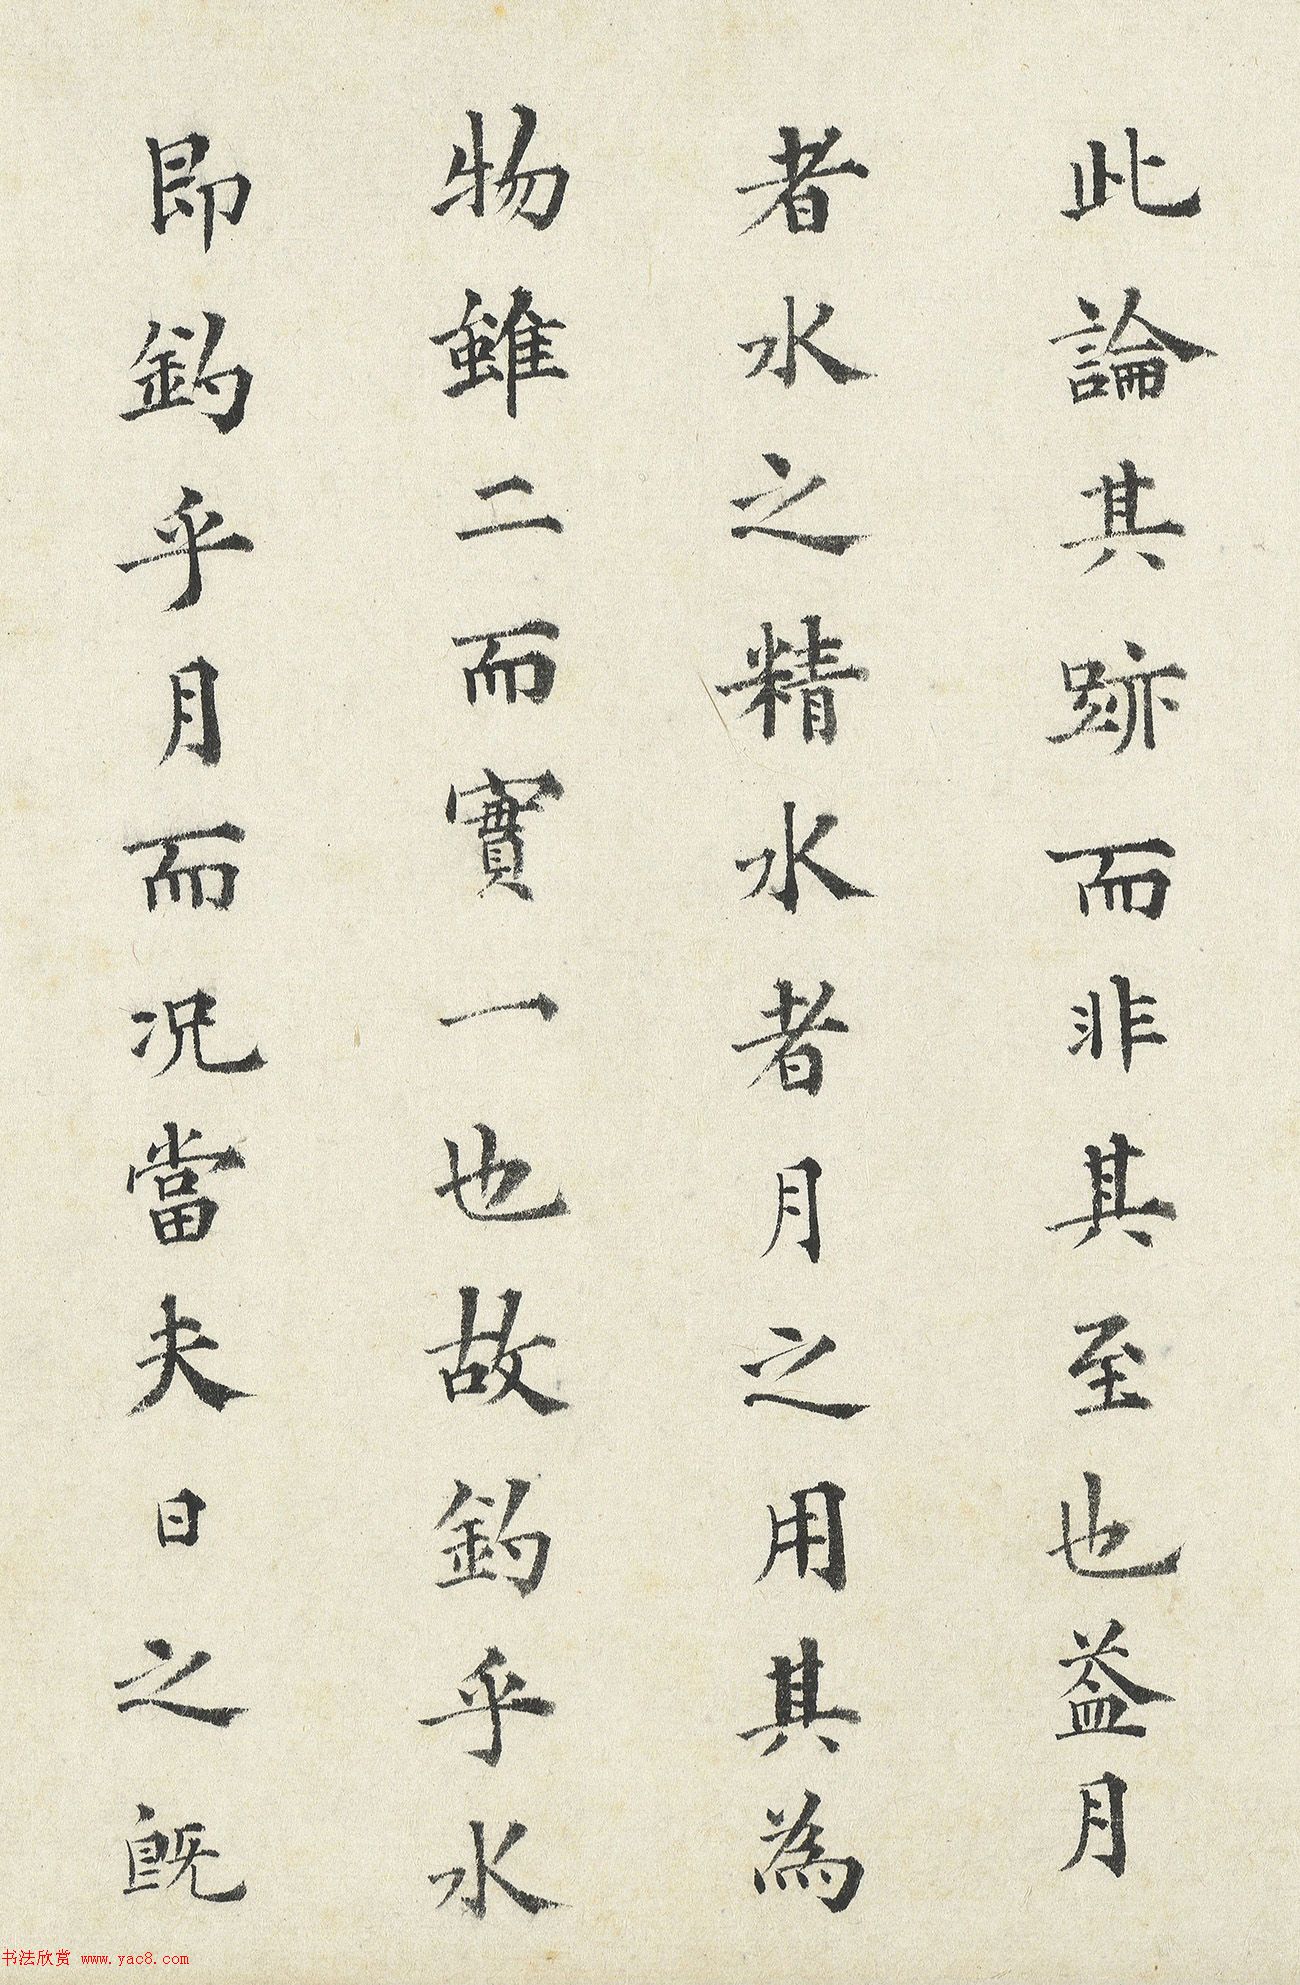 此論其跡而非其至也葢月
者水之精水者月之用其為
物雖二而實一也故釣乎水
即釣乎月而况當夫日之既
书法欣赏 www.yac8.com